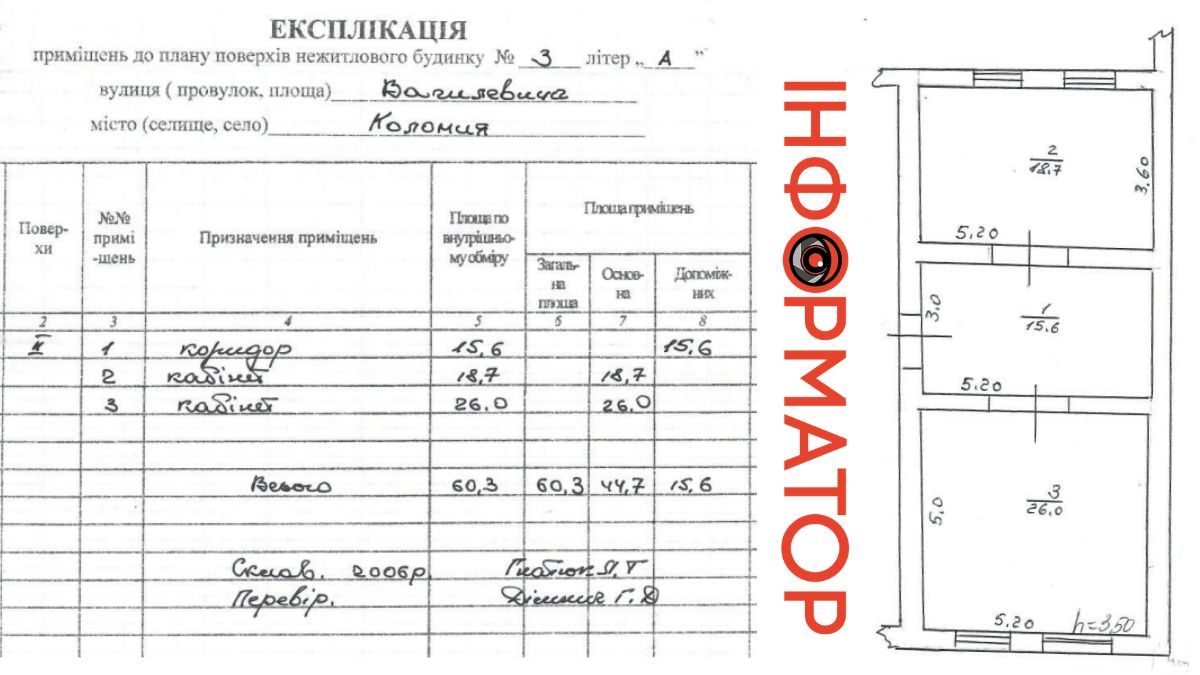 ЕКСПЛІКАЦІЯ
приміщень до плану поверхів нежитлового будинку № 3 літер „ А ”
вулиця ( провулок, площа) Вагилевича
місто (селище, село) Коломия
Повер-
хи
№№
примі
-щень
Призначення приміщень
Площа по
внутрішньо-
му обміру
Площа приміщень
Загаль-
на
площа
Основ-
на
Допоміж-
них
2 3 4 5 6 7 8
ІІ 1 коридор 15,6 15,6
2 кабінет 18,7 18,7
3 кабінет 26.0 26.0
Всього 60,3 60,3 44,7 15,6
Склав. 2006р. Гнатюк Т
Перевір. Г.Д
ІНФОРМАТОР
2
18.7
3.60
5.20
3.0
1
15.6
5.20
5.0
3
26.0
5.20
h=3,50